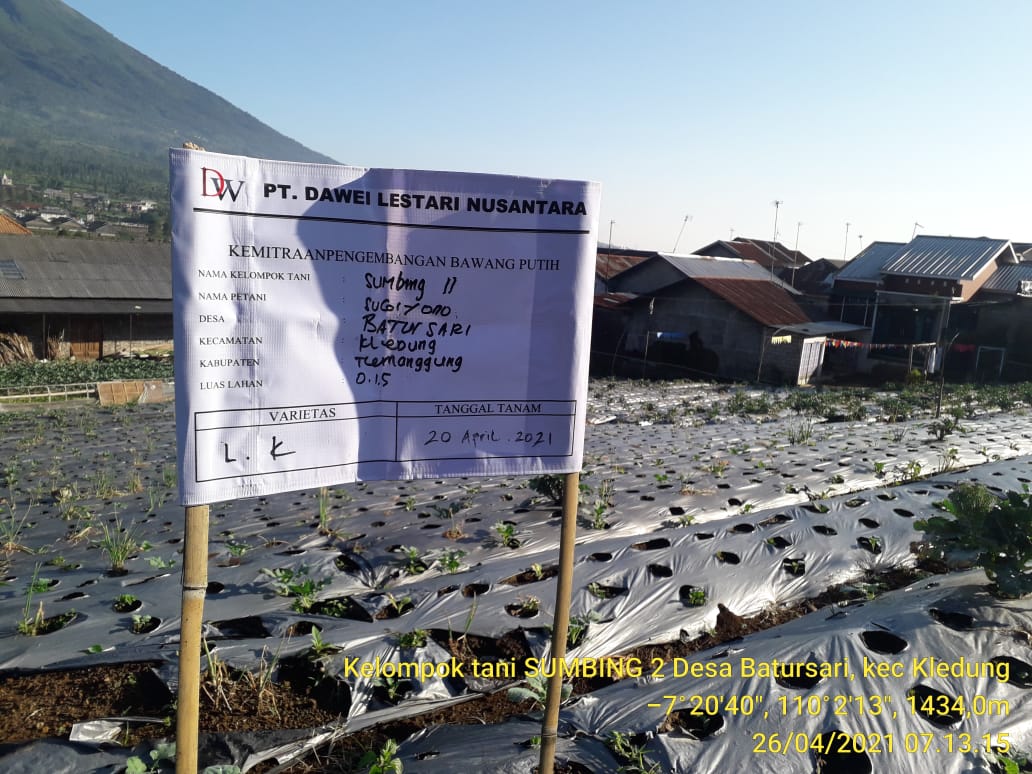 DW PT. DAWEI LESTARI NUSANTARA
KEMITRAANPENGEMBANGAN BAWANG PUTIH
NAMA KELOMPOK TANI : Sumbing II
NAMA PETANI : SUGIYONO
DESA : BATUR SARI
KECAMATAN : Kledung
KABUPATEN : Temanggung
LUAS LAHAN : 0.15
VARIETAS TANGGAL TANAM
L. K 20 April. 2021
Kelompok tani SUMBING 2 Desa Batursari, kec Kledung
−7°20'40", 110°2'13", 1434,0m
26/04/2021 07.13.15